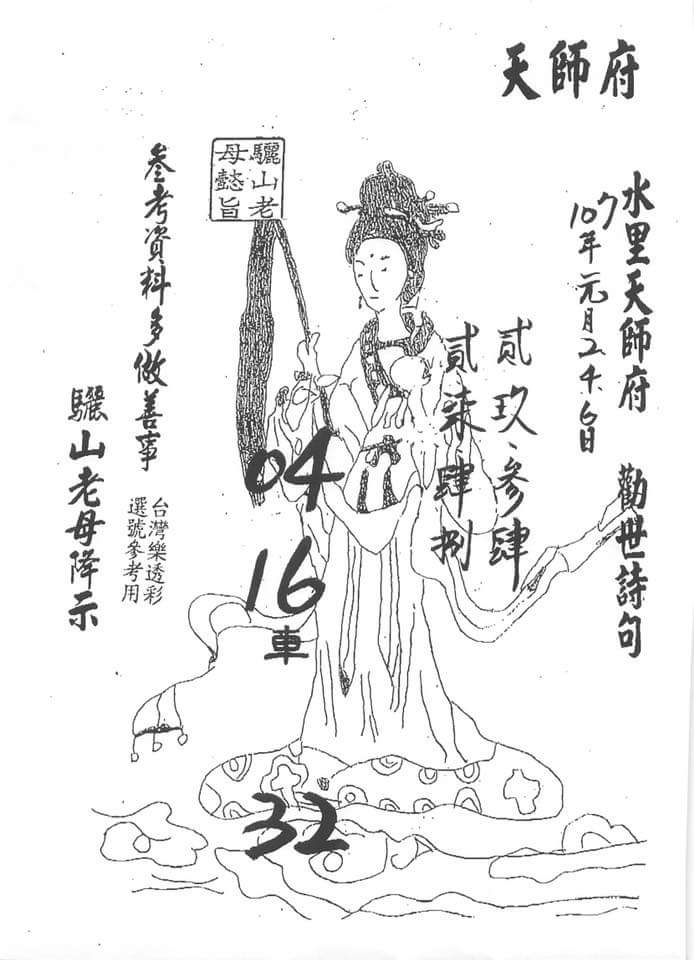 天師府
水里天師府 勸世詩句
107年元月2.4.6日
貳玖、參肆
貳柒、肆捌
驪山老
母懿旨
04
16
車
32
叁考資料多做善事
台灣樂透彩
選號參考用
驪山老母降示